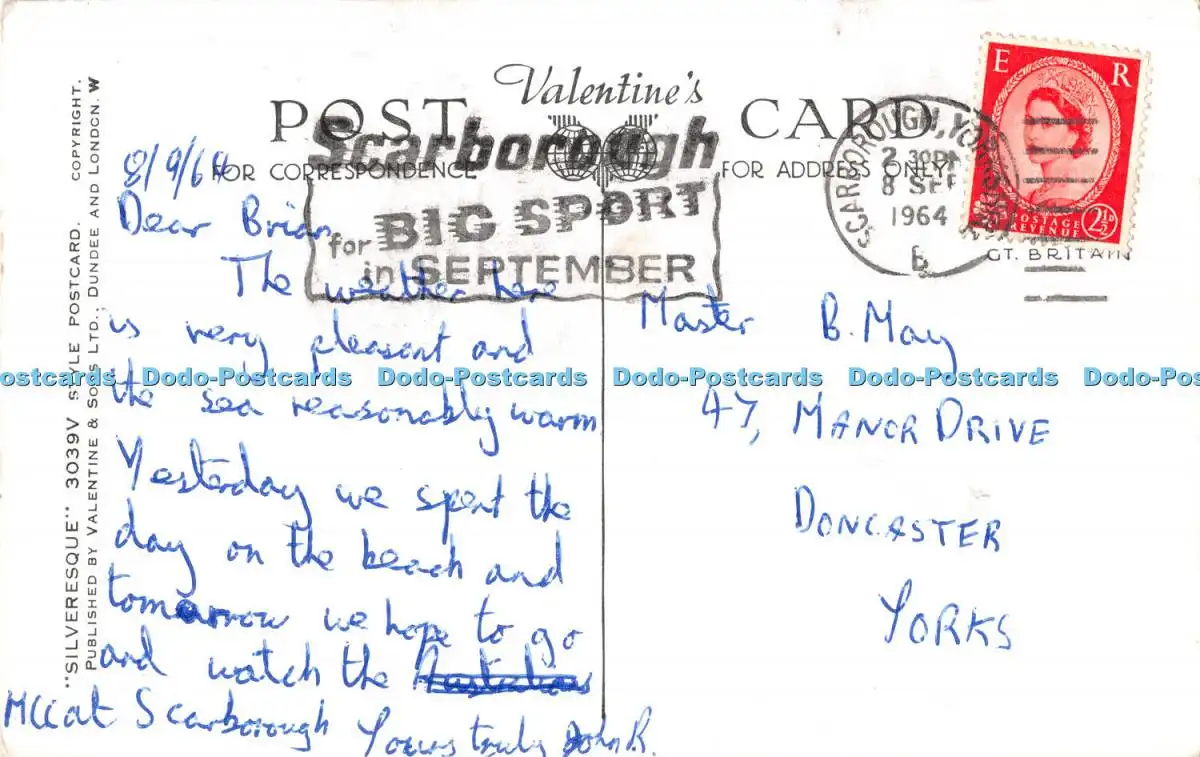 Valentine's
POST CARD
FOR CORRESPONDENCE
FOR ADDRESS ONLY
Scarborough
for BIG SPORT
in SEPTEMBER
SCARBOROUGH,
2 30PM
8 SEP
1964
E R
POSTAGE
REVENUE
2½D
GT. BRITAIN
"SILVERESQUE" 3039V STYLE POSTCARD. COPYRIGHT.
PUBLISHED BY VALENTINE & SONS LTD., DUNDEE AND LONDON. W
8/9/64
Dear Brian,
The weather here
is very pleasent and
the sea reasonably warm
Yesterday we spent the
day on the beach and
tomorrow we hope to go
and watch the
MCC at Scarborough
Yours truly John R.
Master B. May
47, MANOR DRIVE
DONCASTER
YORKS
Dodo-Postcards Dodo-Postcards Dodo-Postcards Dodo-Postcards Dodo-Postcards